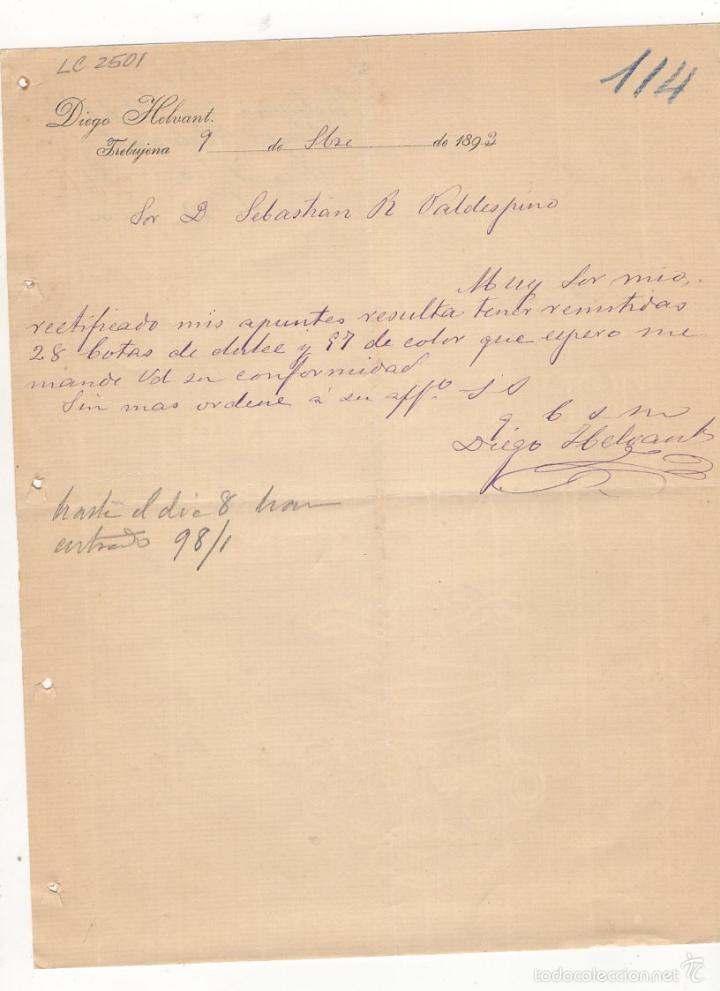 LC 2501
114
Diego Helvant.
Trebujena 9 de Sbre de 1893
Sor D Sebastian R Valdespino
Muy Sor mio,
rectificado mis apuntes resulta tener remitidas
28 botas de dulce y 97 de color que espero me
mande Vd su conformidad
Sin mas ordene á su affº S S
q b s m
Diego Helvant
hasta el dia 8 han
entrado 98/1
todocoleccion.net